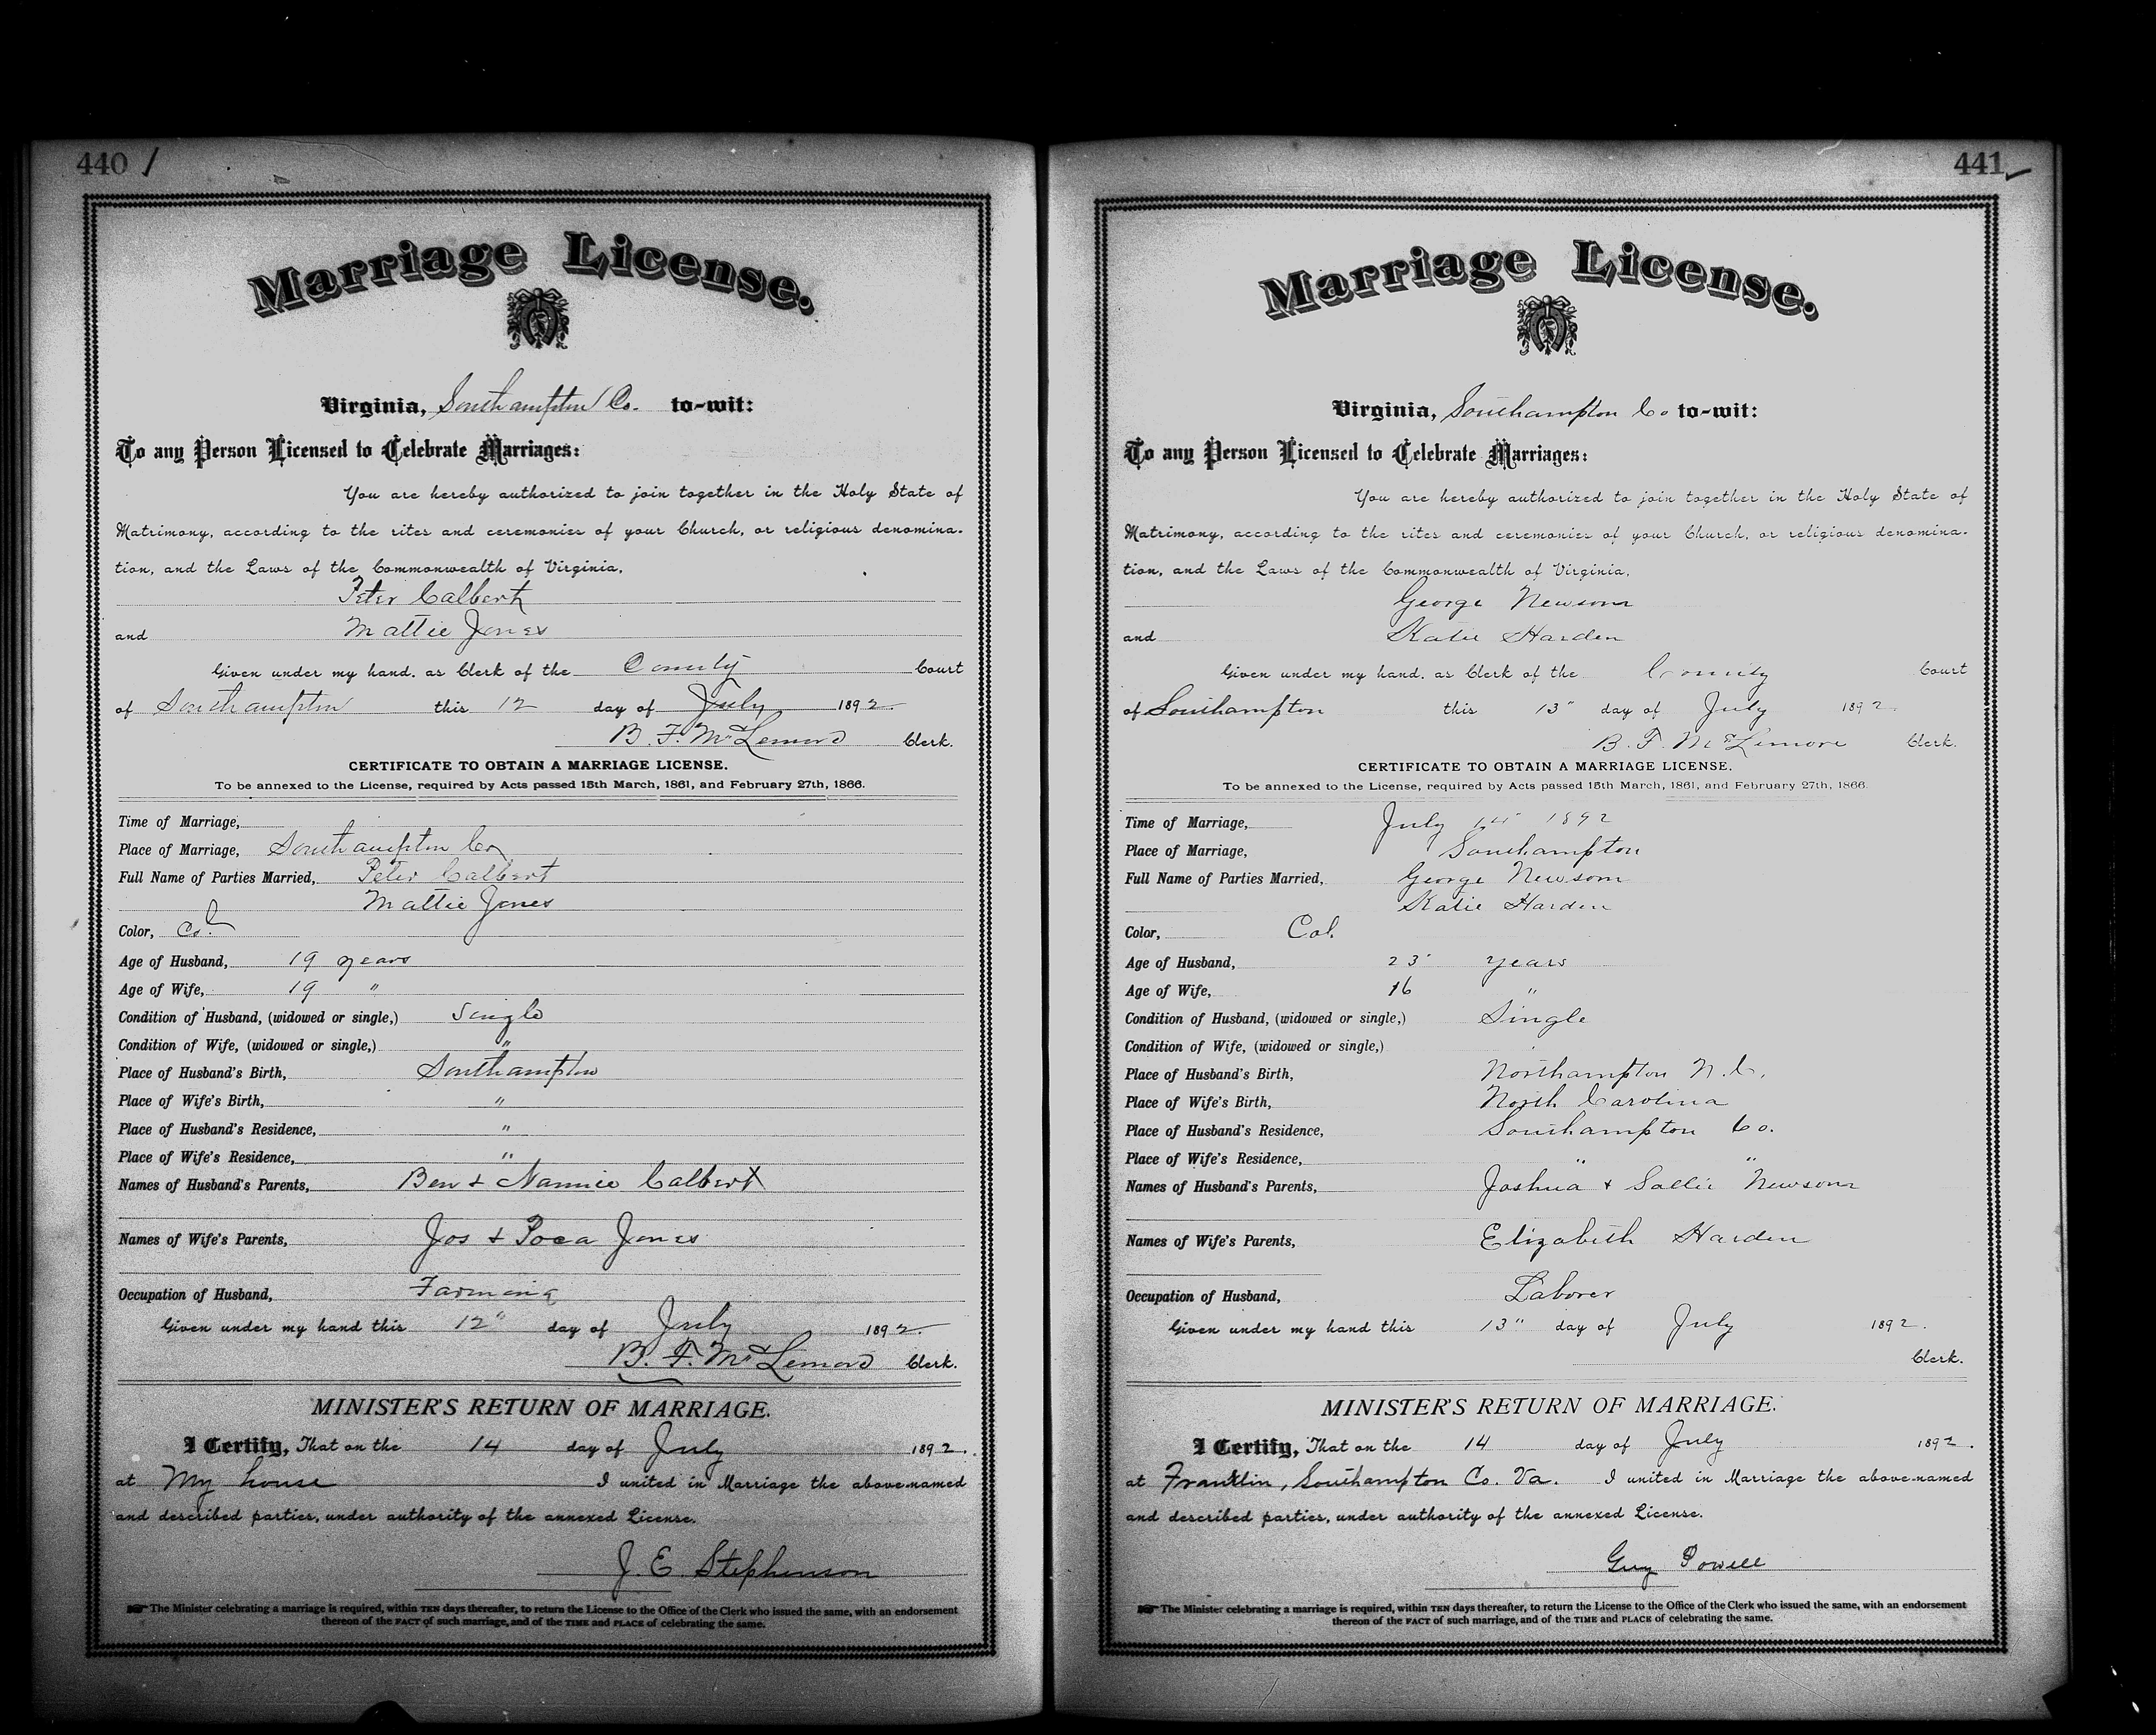 440 /
Marriage License.
Virginia, Southampton Co. to-wit:
To any Person Licensed to Celebrate Marriages:
You are hereby authorized to join together in the Holy State of
Matrimony, according to the rites and ceremonies of your Church, or religious denomina-
tion, and the Laws of the Commonwealth of Virginia,
Peter Calbert
and Mattie Jones
Given under my hand, as Clerk of the County Court
of Southampton this 12 day of July 1892.
B. F. McLemore Clerk.
CERTIFICATE TO OBTAIN A MARRIAGE LICENSE.
To be annexed to the License, required by Acts passed 15th March, 1861, and February 27th, 1866.
Time of Marriage,
Place of Marriage, Southampton Co
Full Name of Parties Married, Peter Calbert
Mattie Jones
Color, Col
Age of Husband, 19 years
Age of Wife, 19 "
Condition of Husband, (widowed or single,) Single
Condition of Wife, (widowed or single,) "
Place of Husband's Birth, Southampton
Place of Wife's Birth, "
Place of Husband's Residence, "
Place of Wife's Residence, "
Names of Husband's Parents, Ben & Nannie Calbert
Names of Wife's Parents, Jos & Poca Jones
Occupation of Husband, Farming
Given under my hand this 12" day of July 1892.
B. F. McLemore Clerk.
MINISTER'S RETURN OF MARRIAGE.
I Certify, That on the 14 day of July 1892.
at My house I united in Marriage the above-named
and described parties, under authority of the annexed License.
J. E. Stephenson
The Minister celebrating a marriage is required, within TEN days thereafter, to return the License to the Office of the Clerk who issued the same, with an endorsement
thereof of the FACT of such marriage, and of the TIME and PLACE of celebrating the same.
441
Marriage License.
Virginia, Southampton Co to-wit:
To any Person Licensed to Celebrate Marriages:
You are hereby authorized to join together in the Holy State of
Matrimony, according to the rites and ceremonies of your Church, or religious denomina-
tion, and the Laws of the Commonwealth of Virginia,
George Newsom
and Katie Harden
Given under my hand, as Clerk of the County Court
of Southampton this 13" day of July 1892.
B. F. McLemore Clerk.
CERTIFICATE TO OBTAIN A MARRIAGE LICENSE.
To be annexed to the License, required by Acts passed 15th March, 1861, and February 27th, 1866.
Time of Marriage, July 14" 1892
Place of Marriage, Southampton
Full Name of Parties Married, George Newsom
Katie Harden
Color, Col.
Age of Husband, 23 years
Age of Wife, 16 "
Condition of Husband, (widowed or single,) Single
Condition of Wife, (widowed or single,)
Place of Husband's Birth, Northampton N.C.
Place of Wife's Birth, North Carolina
Place of Husband's Residence, Southampton Co.
Place of Wife's Residence, " "
Names of Husband's Parents, Joshua & Sallie Newsom
Names of Wife's Parents, Elizabeth Harden
Occupation of Husband, Laborer
Given under my hand this 13" day of July 1892.
Clerk.
MINISTER'S RETURN OF MARRIAGE.
I Certify, That on the 14 day of July 1892.
at Franklin, Southampton Co. Va. I united in Marriage the above-named
and described parties, under authority of the annexed License.
Guy Powell
The Minister celebrating a marriage is required, within TEN days thereafter, to return the License to the Office of the Clerk who issued the same, with an endorsement
thereof of the FACT of such marriage, and of the TIME and PLACE of celebrating the same.